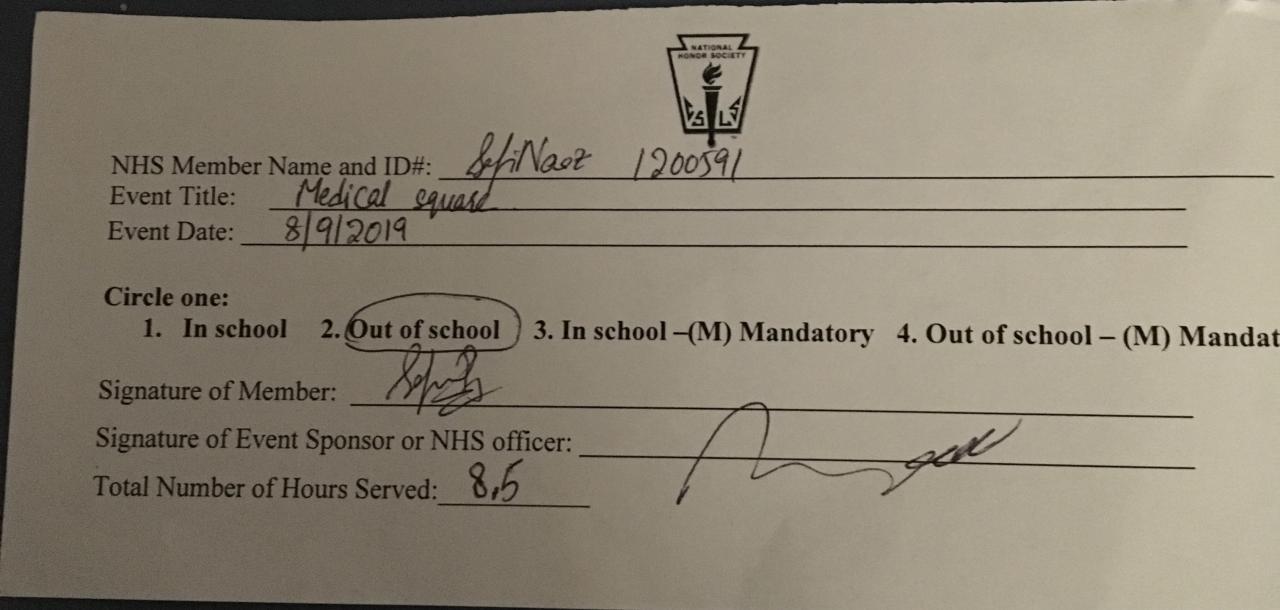 NATIONAL
HONOR SOCIETY
S L S
NHS Member Name and ID#: Sefi Naez 1200591
Event Title: Medical square
Event Date: 8/9/2019
Circle one:
1. In school 2. Out of school 3. In school –(M) Mandatory 4. Out of school – (M) Mandat
Signature of Member:
Signature of Event Sponsor or NHS officer:
Total Number of Hours Served: 8,5